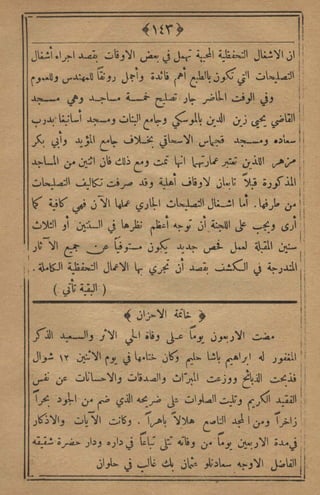 ﴿ ١٤٣ ﴾
ان الاشغال التحفظية المحبية تهمل في بعض الاوقات بقصد اجراء أشغال
التصليحات التي تكون بالطبع أهم فائدة وأجمل رونقاً للمهندس وللعموم
وفي الوقت الحاضر جار تصليح خمسة مساجد وهي مسجد
القاضي يحيى زين الدين بالموسكي وجامع البنات ومسجد أسانبغا بدرب
سعاده ومسجد قجماس الاسحاقي بخلاف جامع المؤيد وأبي بكر
مزهر اللذين تعتبر عمارتهما انها تمت ومع ذلك فان اثنين من المساجد
المذكورة قبلاً تابعان لاوقاف أهلية وقد صرفت تكاليف التصليحات
من طرفها. أما اشغال التصليحات الجاري عملها الآن فهي كافية كما
أرى ويجب على اللجنة أن توجه أعظم نظرها في السنتين أو الثلاث
سنين المقبلة لعمل فحص جديد يكون مستوفياً عن جميع الآثار
المندرجة في الكشف بقصد أن تجري بها الاعمال التحفظية الكاملة.
( البقية تأتي )
﴿ خاتمة الاحزان ﴾
مضت الاربعون يوماً على وفاة الحي الاثر والسعيد الذكر
المغفور له ابراهيم باشا حليم وكان ختامها في يوم الاثنين ١٢ شوال
فذبحت الذبائح ووزعت المبرّات والصدقات والاحسانات عن نفس
الفقيد الكريم وتليت الصلوات على ضريحه الذي ضم من الجود بحراً
زاخراً ومن المجد الناصع هلالاً باهراً. وكانت الآيات والاذكار
في مدة الاربعين يوماً من وفاته تتلى تباعاً في داره ودار حضرة شقيقه
الفاضل الاوجه سعادتلو عثمان بك غالب في حلوان